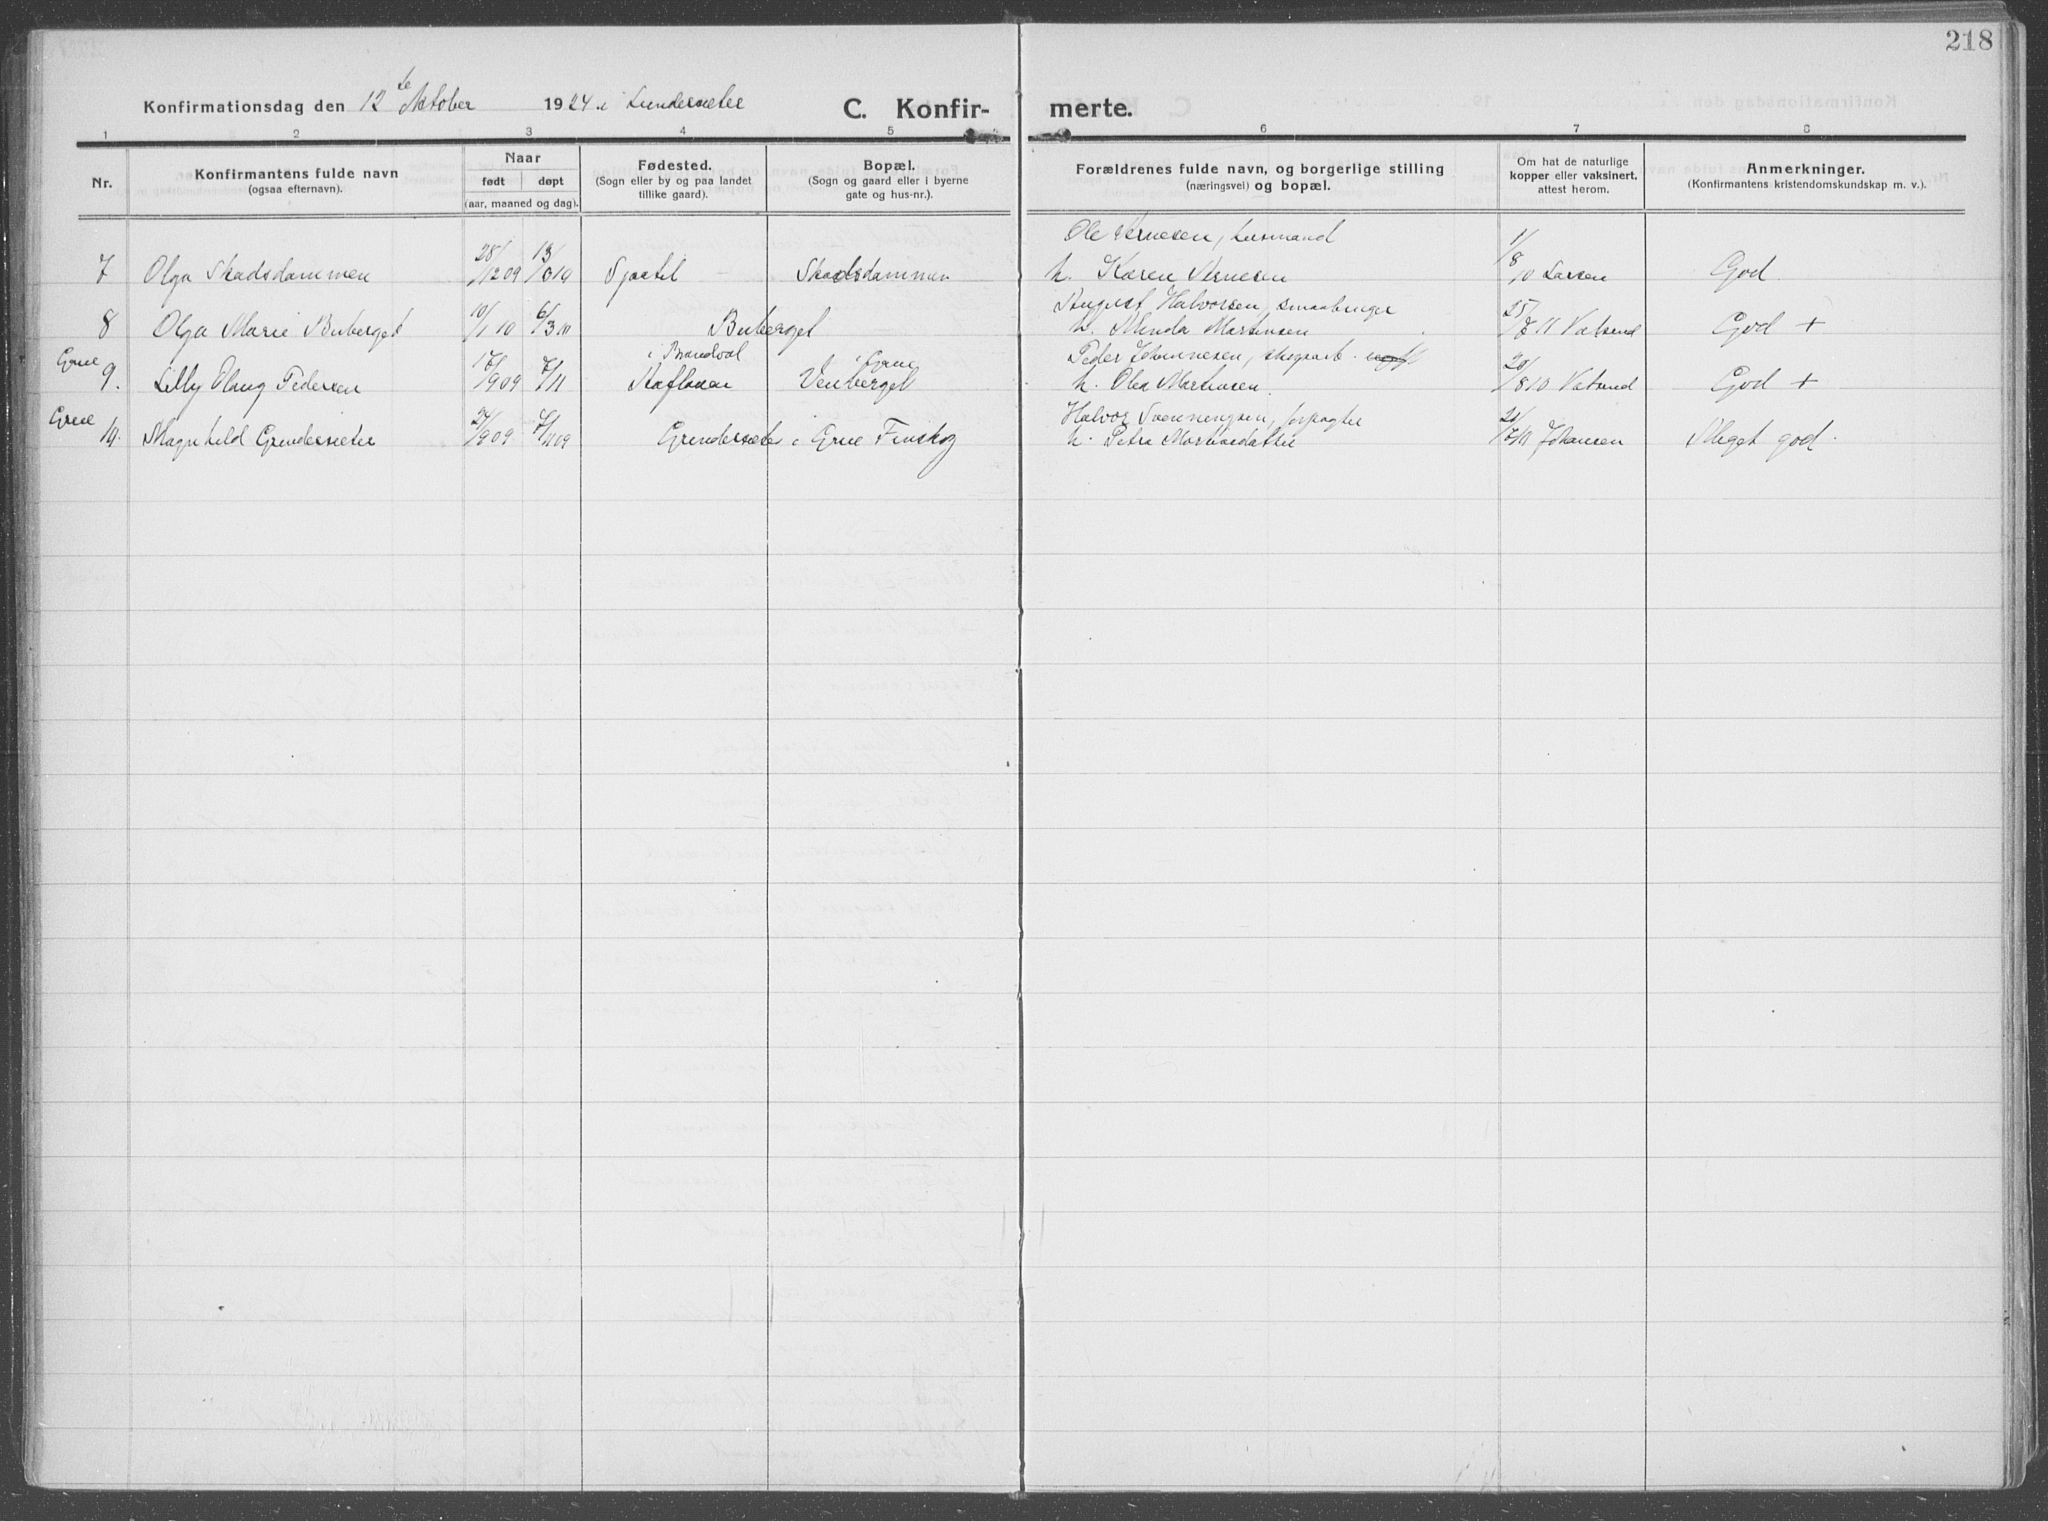 218
Konfirmationsdag den 12te Oktober 1924 i Lundersæter
C. Konfirmerte.
1 2 3 4 5 6 7 8
Nr.
Konfirmantens fulde navn
(ogsaa efternavn).
Naar
født døpt
(aar, maaned og dag).
Fødested.
(Sogn eller by og paa landet
tillike gaard).
Bopæl.
(Sogn og gaard eller i byerne
gate og hus-nr.).
Forældrenes fulde navn, og borgerlige stilling
(næringsvei) og bopæl.
Om hat de naturlige
kopper eller vaksinert,
attest herom.
Anmerkninger.
(Konfirmantens kristendomskundskap m. v.).
Ole Arnesen, husmand
7 Olga Skadsdammen 28/12 09 Skadsdammen h. Karen Arnesen 1/8 10 Larsen God
August Halvorsen, smaabruger
8 Olga Marie Buberget 10/1 10 6/3 10 Buberget h. Minda Martinsen 25/8 11 Vatsend God +
Grue i Brandval i Grue Peder Johannesen, skogsarb.
9. Lilly Olaug Pedersen 17/9 09 7/11 Venberget h. Olea Martinsen 20/8 10 Vatsend God +
Grue Halvor Svenningsen, forpagter
14. Magnhild Grendersæter 27/9 09 7/11 09 Grendersæter i Grue Finskog h. Petra Mathisdatter Johansen Meget god.